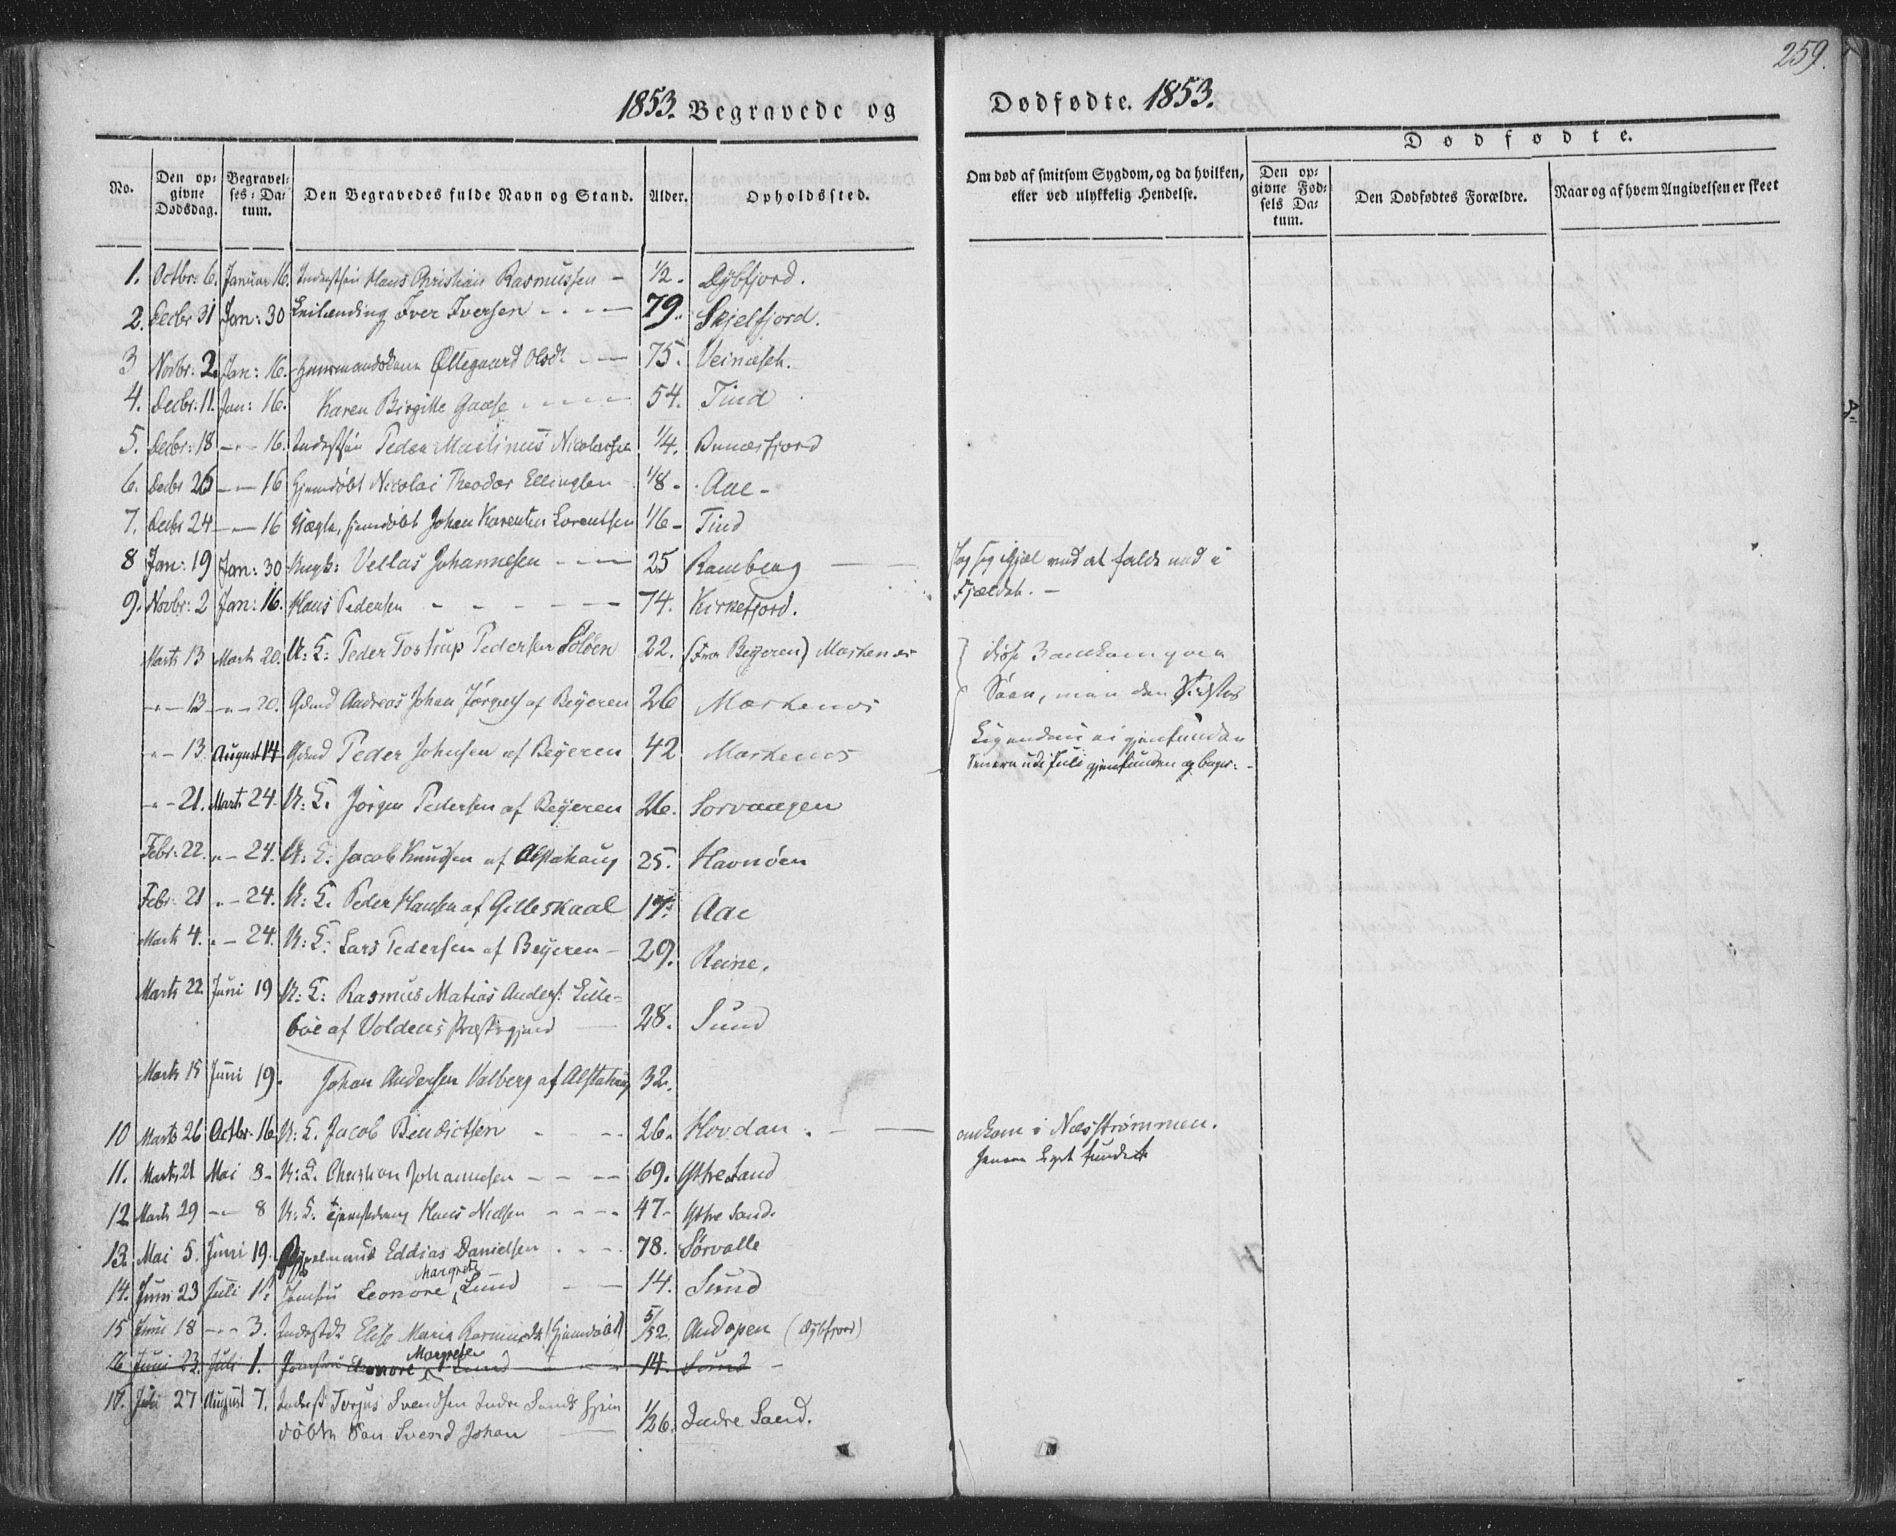 259.
1853. Begravede og Dødfødte. 1853.
Dødfødte.
No.
Den opgivne Dødsdag.
Begravelses-Datum.
Den Begravedes fulde Navn og Stand.
Alder.
Opholdssted.
Om død af smitsom Sygdom, og da hvilken, eller ved ulykkelig Hendelse.
Den opgivne Fødsels Datum.
Den Dødfødtes Forældre.
Naar og af hvem Angivelsen er skeet
1. Octbr: 6. Januar 16. Hans Christian Rasmussen — 1/2. Dybfjord.
2. Decbr 31 Jan: 30 Leilænding Iver Iversen 79. Skjelfjord.
3 Novbr: 2. Jan: 16. Øllegaard Olsdt. 75.
4. Decbr. 11. Jan: 16. Karen Birgitte 54. Tind
5. Decbr: 18 — 16. Peder Martinus Nicolaisen 1/4. Bunæsfjord
6. Decbr 26 — 16 Hjemdøbt Nicolai Theodor 1/8. Aae
7. Decbr 24 — 16 hjemdøbt Johan Lorentsen 1/6 Tind
8 Jan: 19 Jan: 30 Ungk: Vellas Johannesen 25 Ramberg — slog sig ihjel ved at falde ned i
Fjeldet. —
9. Novbr: 2 Jan: 16. Hans Pedersen 74. Kirkefjord.
Marts 13 Marts 20. U: K: Peder Tostrup Pedersen 22. (Fra Beyeren) Markenæs
— 13 — 20. Andreas Johan af Beyeren 26 Markenæs
Søen, men den
— 13 August 14 Peder Johnsen af Beyeren 42 Markenæs
Ligendeuden gjenfunden
Juli gjenfunden og
— 21. Marts 24. U: K. Jørgen Pedersen af Beyeren 26. Sorvaagen
Febr: 22. — 24. U: K: Jacob Knudsen af Alstahaug 25. Havnøen
Febr: 21 — 24. U: K. Peder Hansen af Gilleskaal Aae
Marts 4. — 24. U: K: Lars Pedersen af Beyeren — 29. Reine.
Marts 22 Juni 19 U: K: Rasmus Matias Anders: Lille-
bøe af Voldens Præstegjeld 28. Sund
Marts 15 Juni 19. Johan Andersen Valberg af Alstahaug 32.
10 Marts 26 Octbr. 16 U: K. Jacob Bendictsen 26. Hovdan. — omkom i Næsstrømmen.
funden
11. Marts 21 Mai 8 U: K. Christian Johannesen 69. Ystre Sand
12 Marts 29 — 8 U: K. Hans Nielsen 47 Ystre Sand.
13. Mai 5. Juni 19. Eddias Danielsen 78. Sørvalle
14. Juni 23 Juli 1. Jomfru Leonore Margrete Lund 14. Sund
15 Juni 18 — 3. Elise Maria (Hjemdøbt) 5/52. Andopen (Dybfjord)
16 Juni 23. Juli 1. Jomfru Margrete Lund 14. Sund
17. Juli 27 August 7. Torjus Svendsen Indre Sands Hjem
døbte Søn Svend Johan 1/26. Indre Sand.